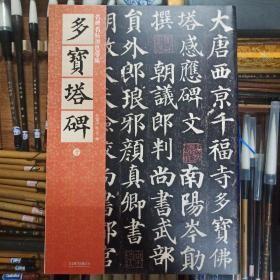 多寶塔碑
大唐西京千福寺多寶佛
塔感應碑文南陽岑勛
撰朝議郎判尚書武部
員外郎琅邪顏真卿書
朝散大夫
尚書都官